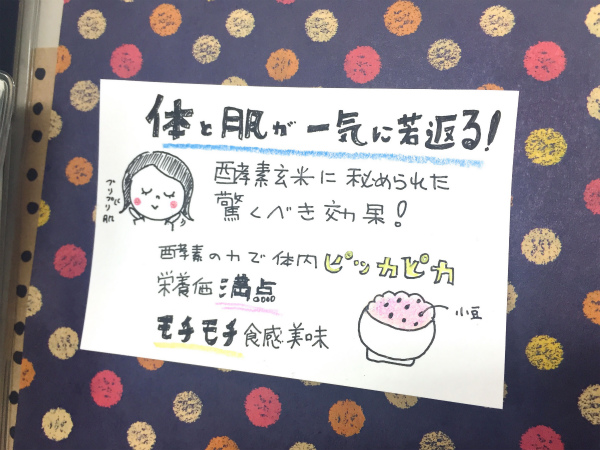 体と肌が一気に若返る!
酵素玄米に秘められた
驚くべき効果!
プリプリ肌
酵素の力で体内ピッカピカ
栄養価満点
小豆
モチモチ食感美味